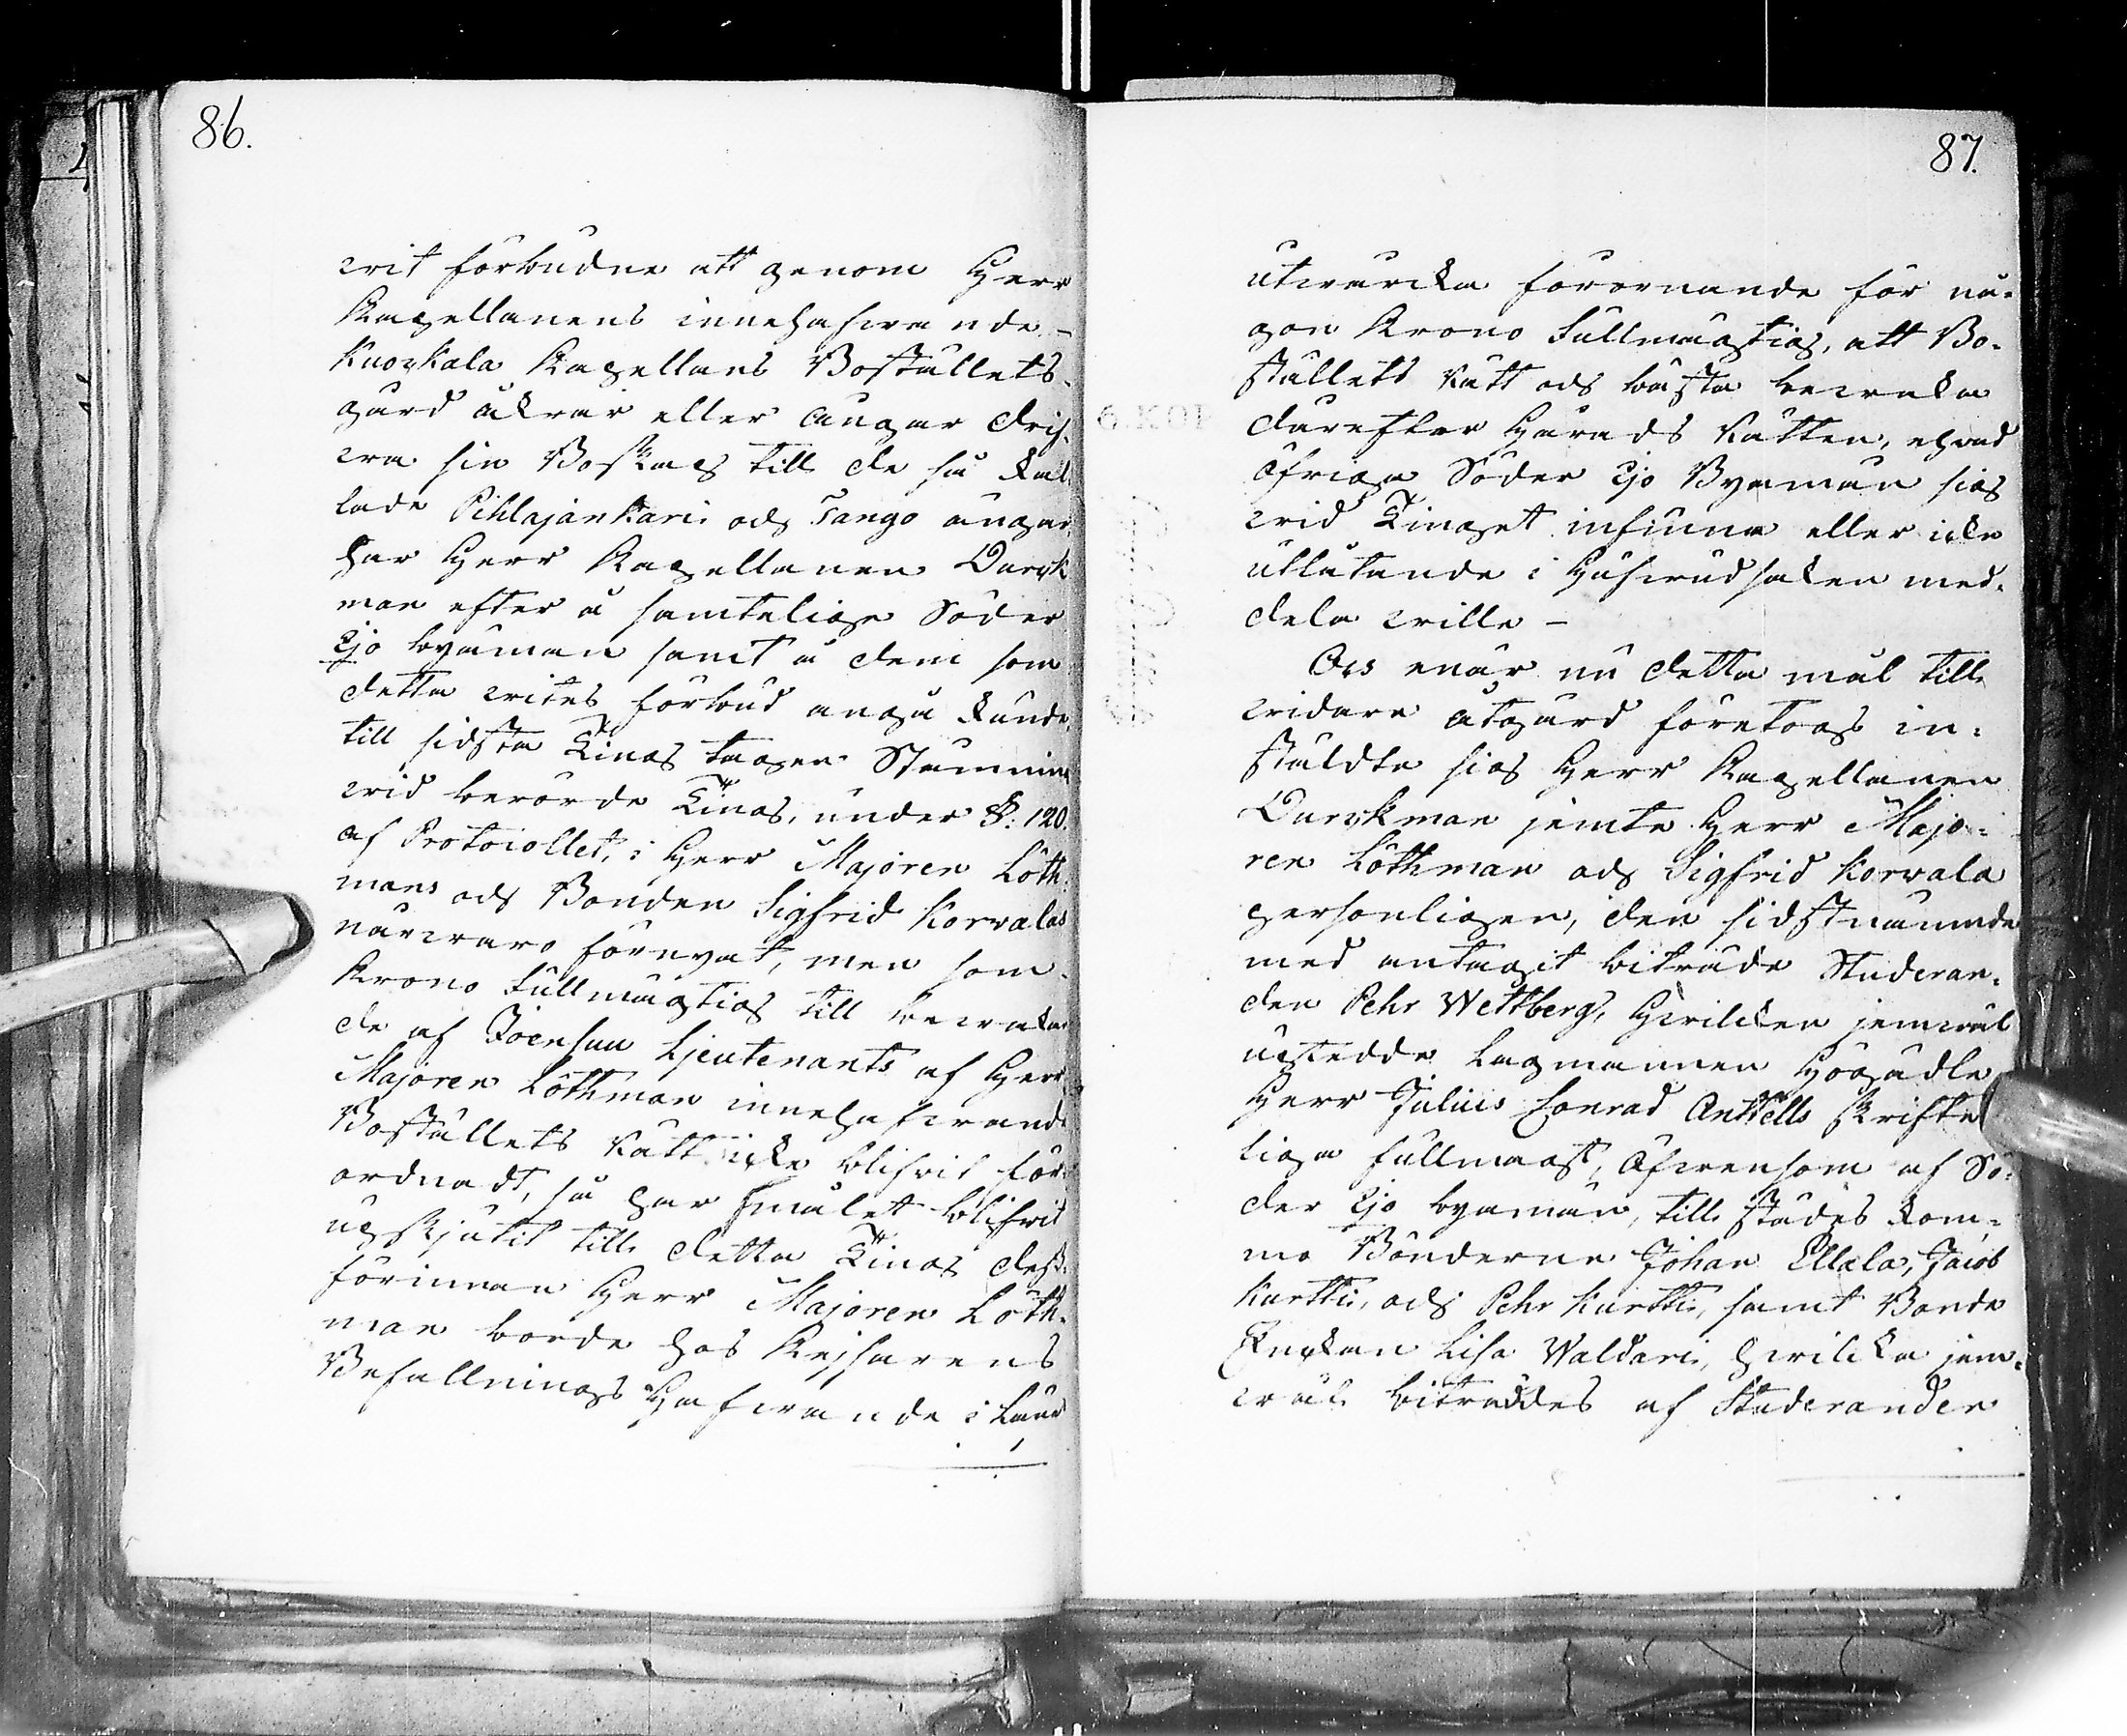 86.
vit förbudne att genom Herr
Kapellanens innehafwande
Kuopkala Kapellans Boställets
gärd åkrar eller ängar drif-
wa sin Boskap till de så kal-
lade Pihlajankari och Tango ängar,
har Herr Kapellanen Durch
man efter å samtelige Söder
Ijo byamän samt å dem som
detta wites förbud angå kunde,
till sidsta Ting tagen Stämning
wid berörde Ting, under §: 120.
af Protocollet, i Herr Majoren Löth-
mans och Bonden Sigfrid Korvalas
närwaro förevat, men som
Krono Fullmägtig till bewaka
de af Joensuu Lieutenants af Herr
Majoren Löthman innehafwande
Boställets rätt icke blifvit för-
ordnadt, så har målet blifvit
upskjutit till detta Ting dess-
förinnan Herr Majoren Löth-
man borde hos Kejsarens
Befallnings Hafwande i Länet
87.
utwärcka förornande för nå-
gon Krono Fullmägtig, att Bo-
ställets rätt och bästa bewaka
därefter Härads Rätten, ehvad
öfriga Söder Ijo Byamän sig
wid Tinget infinna eller icke
utlåtande i Hufwudsaken med-
dela wille –
Och enär nu detta mål till
widare åtgärd företogs in-
ställdte sig Herr Kapellanen
Durchman jemte Herr Majo-
ren Löthman och Sigfrid Korvala
personligen, den sidstnämnde
med antagit biträde Studeran-
den Pehr Wettberg, Hwilcken jemwäl
upstedde Lagmannen Högädle
Herr Julius Conrad Antells skrifte
liga fullmagt, Äfwensom af Sö-
der Ijo byamän, till städes kom-
mo Bönderne Johan Ellala, Jacob
Kurtti, och Pehr Kurtti, samt Bonde
Enckan Lisa Waldari, hwilcka jem-
wäl biträddes af Studeranden